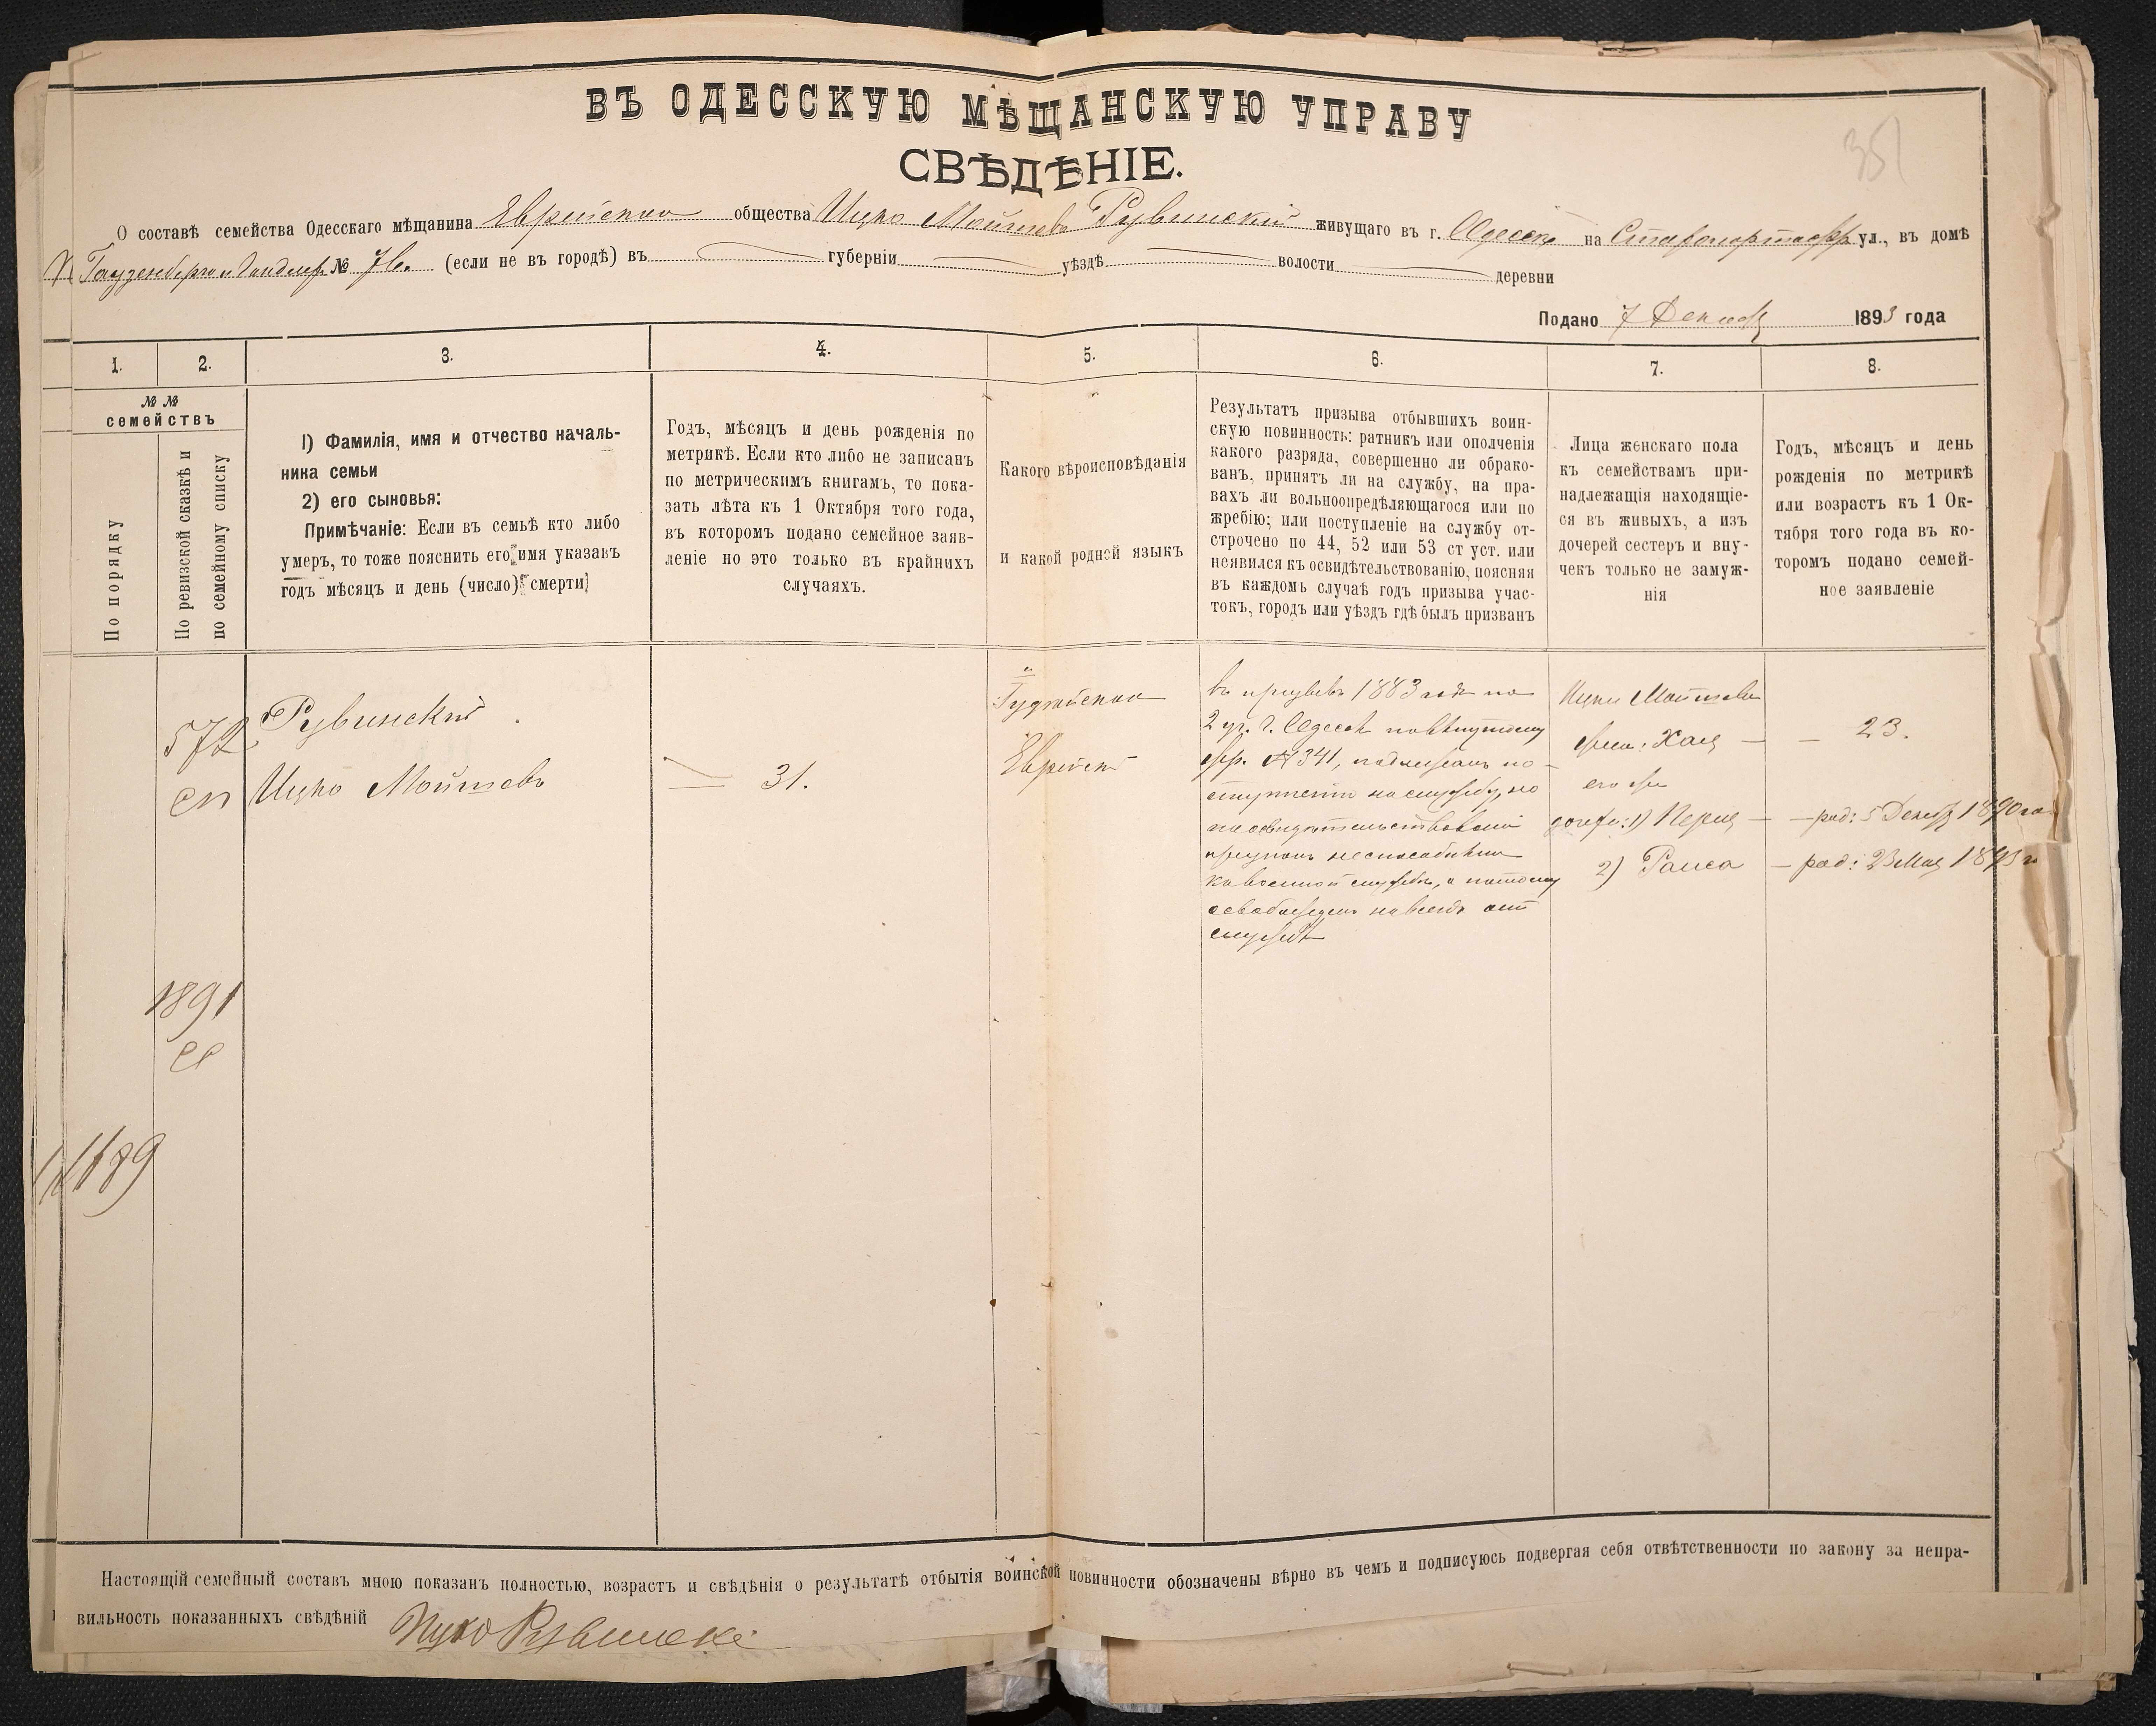 ВЪ ОДЕССКУЮ МѢЩАНСКУЮ УПРАВУ
СВѢДѢНІЕ.
351
О составѣ семейства Одесскаго мѣщанина Еврейскаго общества Ицко Мойшевъ Рувинскій живущаго въ г. Одессѣ на Старопортофр ул., въ домѣ
№ 76. (если не въ городѣ) въ губерніи уѣздѣ волости деревни
Подано 7 Декабр 1893 года
1. 2. 3. 4. 5. 6. 7. 8.
№ №
семействъ
По порядку
По ревизской сказкѣ и
по семейному списку
1) Фамилія, имя и отчество началь-
ника семьи
2) его сыновья:
Примѣчаніе: Если въ семьѣ кто либо
умеръ, то тоже пояснить его имя указавъ
годъ мѣсяцъ и день (число) смерти
Годъ, мѣсяцъ и день рожденія по
метрикѣ. Если кто либо не записанъ
по метрическимъ книгамъ, то пока-
зать лѣта къ 1 Октября того года,
въ которомъ подано семейное заяв-
леніе но это только въ крайнихъ
случаяхъ.
Какого вѣроисповѣданія
и какой родней языкъ
Результатъ призыва отбывшихъ воин-
скую повинность: ратникъ или ополченія
какого разряда, совершенно ли обрако-
ванъ, принятъ ли на службу, на пра-
вахъ ли вольноопредѣляющагося или по
жребію; или поступленіе на службу от-
строчено по 44, 52 или 53 ст уст. или
неявился къ освидѣтельствованію, поясняя
въ каждомъ случаѣ годъ призыва учас-
токъ, городъ или уѣздъ гдѣ былъ призванъ
Лица женскаго пола
къ семействамъ при-
надлежащія находящіе-
ся въ живыхъ, а изъ
дочерей сестеръ и вну-
чекъ только не замуж-
нія
Годъ, мѣсяцъ и день
рожденія по метрикѣ
или возрастъ къ 1 Ок-
тября того года въ ко-
торомъ подано семей-
ное заявленіе
572
сп
Рувинскій
Ицко Мойшевъ
31.
Іудейскаго
Еврейскій
въ призывъ 1883 года по
2 уч. г. Одессѣ по вынутому
жр. № 341, подлежалъ по-
ступленію на службу, но
по освидѣтельствованіи
признанъ неспособнымъ
къ военной службѣ, а потому
освобожденъ навсегда отъ
службы
Ицки Мойшева
жена: Хая
его же
дочери: 1) Перля
2) Раиса
23.
род: 5 Декабр 1890 го
род: 23 Мая 1893 г
1891
1189
Настоящій семейный составъ мною показанъ полностью, возрастъ и свѣдѣнія о результатѣ отбытія воинской повинности обозначены вѣрно въ чемъ и подписуюсь подвергая себя отвѣтственности по закону за непра-
вильность показанныхъ свѣдѣній Ицко Рувински